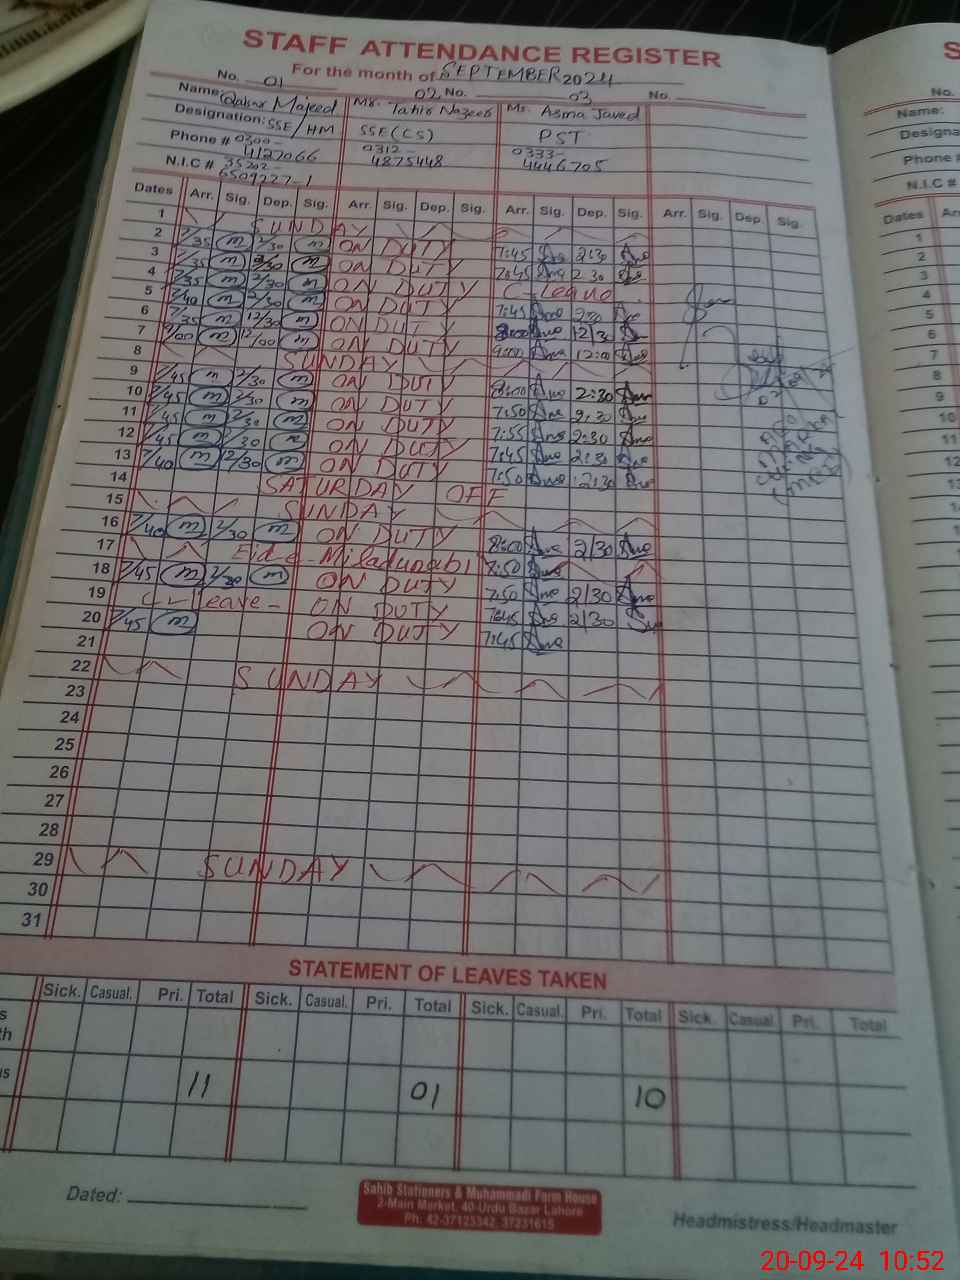 STAFF ATTENDANCE REGISTER
For the month of SEPTEMBER 2024
No. 01 02 No. 03 No.
Name: Majeed Mr. Tahir Nazeer Ms. Asma Javed
Designation: SSE/HM SSE(CS) PST
Phone # 0300- 0312- 0333-
4127066 4875448 4446705
N.I.C # 35202-
6509227-1
Dates Arr. Sig. Dep. Sig. Arr. Sig. Dep. Sig. Arr. Sig. Dep. Sig. Arr. Sig. Dep. Sig.
1 SUNDAY
2 7/35 m 2/30 m ON DUTY 7:45 2:30
3 7/35 m 2/30 m ON DUTY 7:45 2:30
4 7/35 m 2/30 m ON DUTY C-Leave
5 7/40 m 2/30 m ON DUTY 7:45 2:30
6 7/35 m 12/30 m ON DUTY 8:00 12/30
7 9/00 m 12/00 m ON DUTY 9:00 12:00
8 SUNDAY
9 7/45 m 2/30 m ON DUTY 8:00 2:30
10 7/45 m 2/30 m ON DUTY 7:50 2:30
11 7/45 m 2/30 m ON DUTY 7:55 2:30
12 7/45 m 2/30 m ON DUTY 7:45 2:30
13 7/40 m 2/30 m ON DUTY 7:50 2:30
14 SATURDAY OFF
15 SUNDAY
16 7/40 m 2/30 m ON DUTY 8:00 2/30
17 Eid-e-Miladunabi 7:50
18 7/45 m 2/30 m ON DUTY 7:50 2/30
19 leave - ON DUTY 7:45 2/30
20 7/45 m ON DUTY 7:45
21
22 SUNDAY
23
24
25
26
27
28
29 SUNDAY
30
31
STATEMENT OF LEAVES TAKEN
Sick. Casual. Pri. Total Sick. Casual. Pri. Total Sick. Casual. Pri. Total Sick. Casual. Pri. Total
11 01 10
Dated:
Sahib Stationers & Muhammadi Form House
2-Main Market, 40-Urdu Bazar Lahore
Ph: 42-37123342, 37231615
Headmistress/Headmaster
No.
Name:
Designa
Phone #
N.I.C #
Dates Arr
1
2
3
4
5
6
7
8
9
10
11
12
20-09-24 10:52